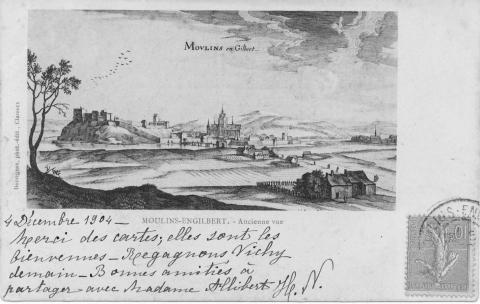 MOVLINS en Gilbert.
Desvignes, phot.-édit., Clamecy
MOULINS-ENGILBERT. - Ancienne vue
4 Décembre 1904 -
Merci des cartes; elles sont les
bienvenues - Regagnons Vichy
demain - Bonnes amitiés à
partager avec Madame Allibert H. N.
10